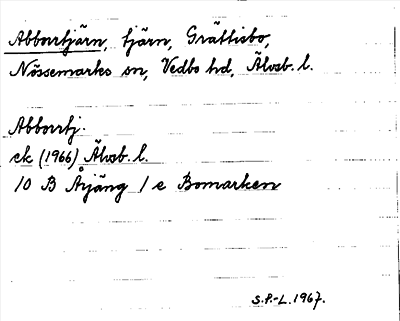 Abborrtjärn, tjärn, Grättisbo,
Nössemarks sn, Vedbo hd, Älvsb. l.
Abborrtj.
ek (1966) Älvsb. l.
10 B Årjäng 1 e Bomarken
S.P.-L. 1967.